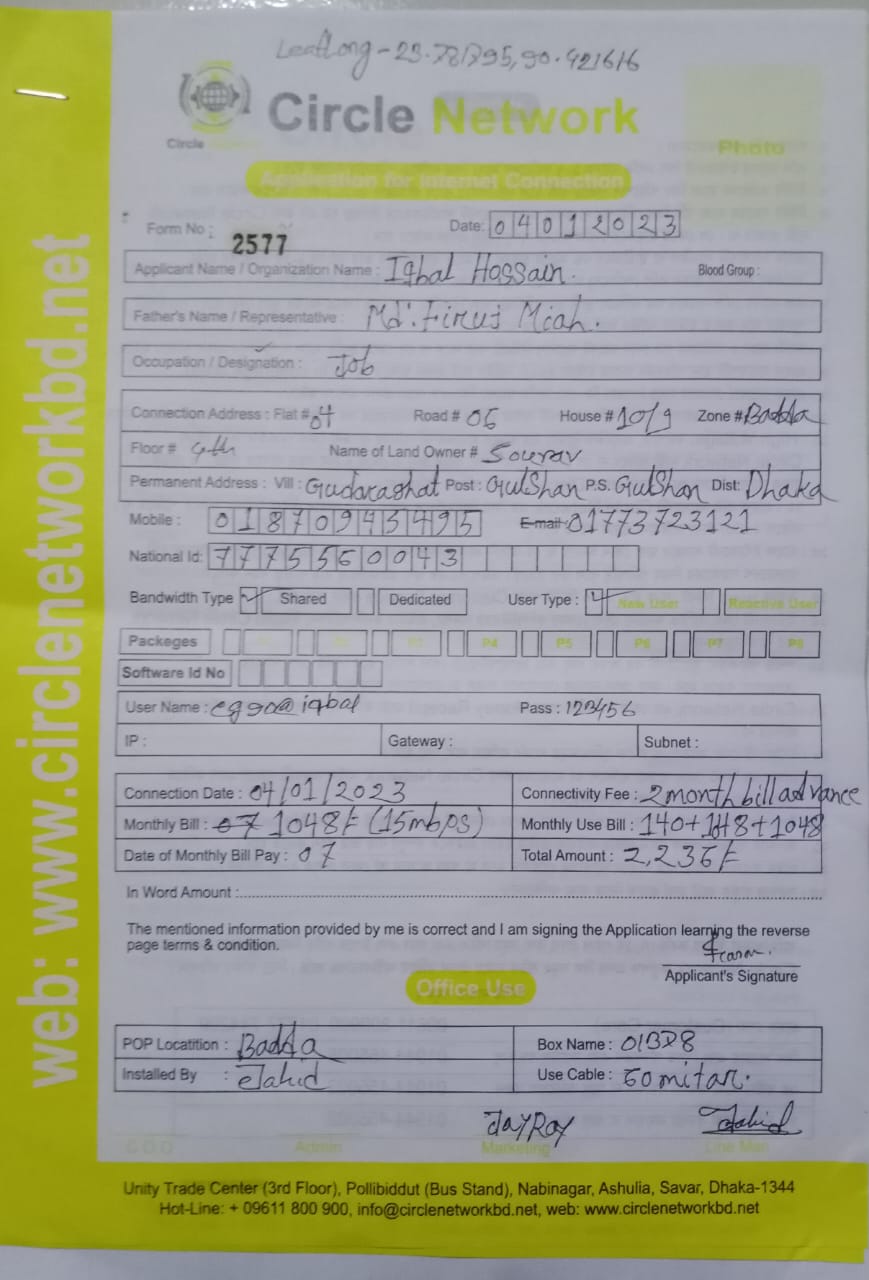 Circle Network
Circle
Photo
Application for Internet Connection
Form No : 2577
Date: 04012023
Applicant Name / Organization Name : Iqbal Hossain. Blood Group :
Father's Name / Representative : Md. Firuj Miah.
Occupation / Designation : Job
Connection Address : Flat # 04 Road # 06 House # 10/9 Zone # Badda
Floor # 4th Name of Land Owner # Sourav
Permanent Address : Vill : Gudaraghat Post : GulShan P.S. GulShan Dist: Dhaka
Mobile : 01870943495 E-mail: 01773723121
National Id: 7775560043
Bandwidth Type Shared Dedicated User Type : New User Reactive User
Packeges P4 P5 P6 P7 P8
Software Id No
User Name : @iqbal Pass : 123456
IP : Gateway : Subnet :
Connection Date : 04/01/2023 Connectivity Fee : 2 month bill advance
Monthly Bill : 07 1048/= (15mbps) Monthly Use Bill : 140+1048+1048
Date of Monthly Bill Pay : 07 Total Amount : 2,236/=
In Word Amount :
The mentioned information provided by me is correct and I am signing the Application learning the reverse
page terms & condition.
Applicant's Signature
Office Use
POP Locatition : Badda Box Name : 01BD8
Installed By : Jahid Use Cable : 60 mitar.
JayRoy Jahid
C O O Admin Marketing Line Man
Unity Trade Center (3rd Floor), Pollibiddut (Bus Stand), Nabinagar, Ashulia, Savar, Dhaka-1344
Hot-Line: + 09611 800 900, info@circlenetworkbd.net, web: www.circlenetworkbd.net
web: www.circlenetworkbd.net